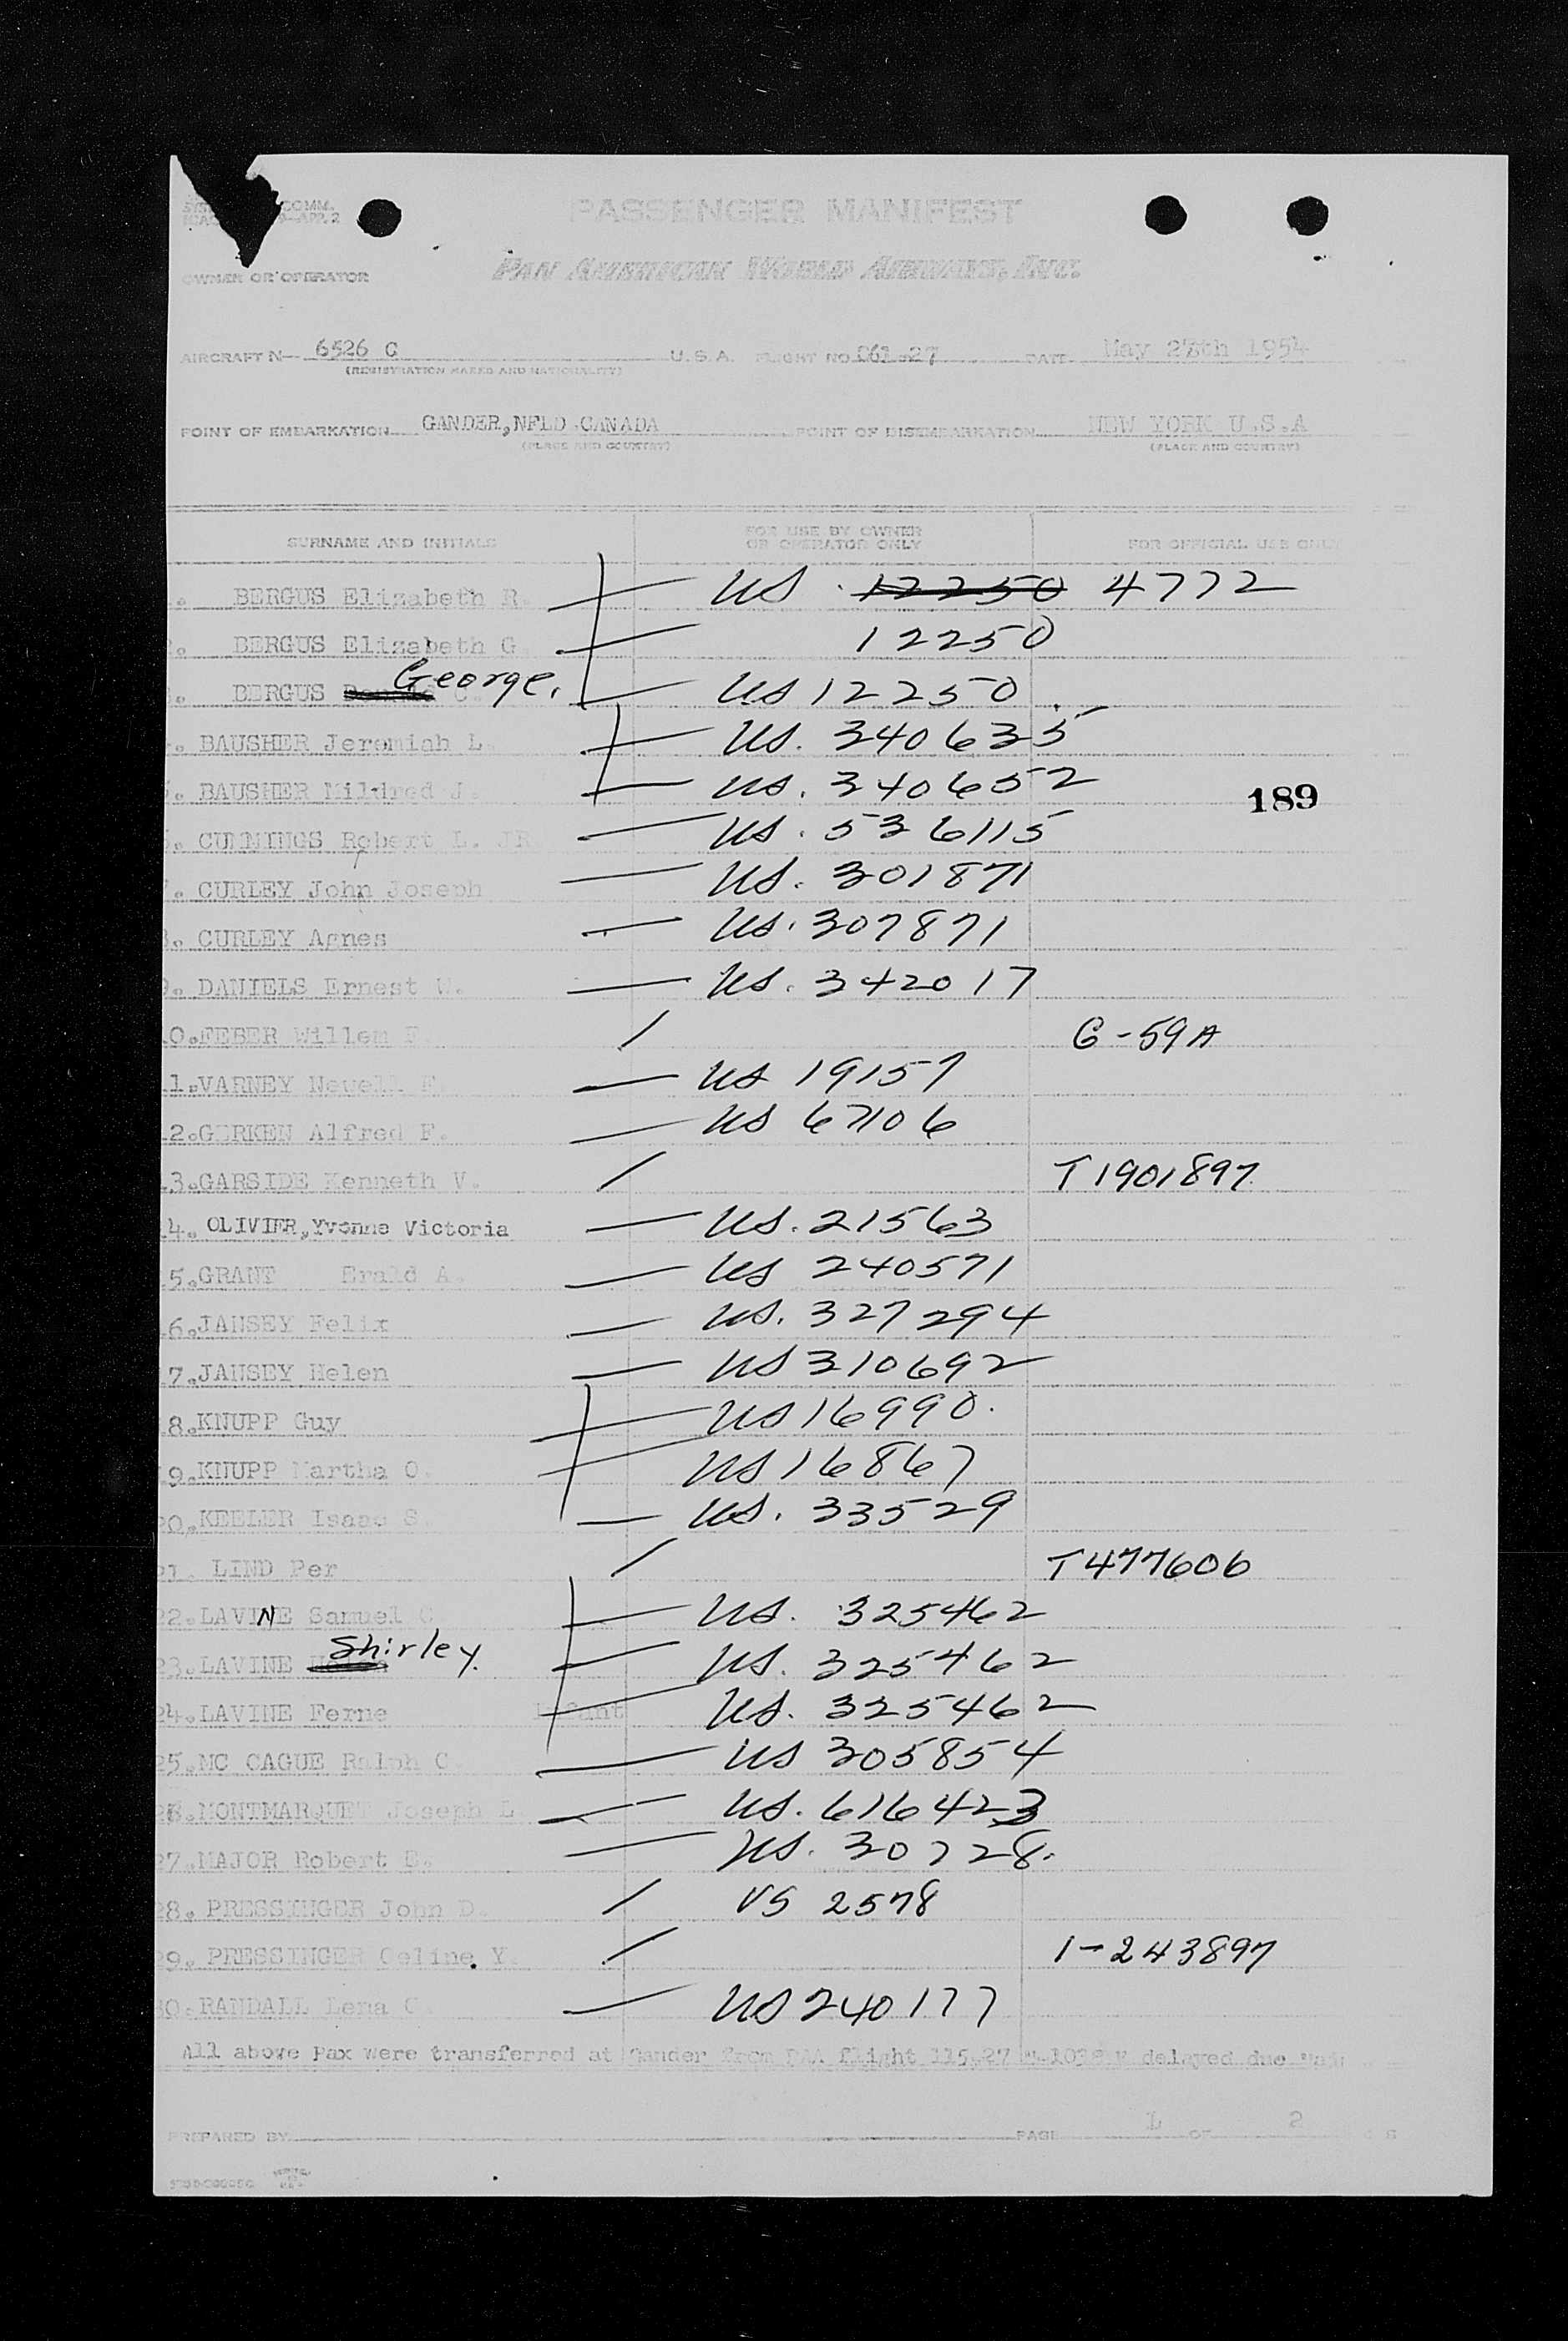 COMM.
APP. 2
PASSENGER MANIFEST
OWNER OR OPERATOR
PAN AMERICAN WORLD AIRWAYS, INC.
AIRCRAFT N— 6526 C U. S. A. FLIGHT NO. 27 DATE May 1954
(REGISTRATION MARKS AND NATIONALITY)
POINT OF EMBARKATION GANDER, NFLD .CANADA POINT OF DISEMBARKATION NEW YORK U.S.A
(PLACE AND COUNTRY) (PLACE AND COUNTRY)
SURNAME AND INITIALS FOR USE BY OWNER OR OPERATOR ONLY FOR OFFICIAL USE ONLY
. BERGUS Elizabeth R. US 12250 4772
. BERGUS Elizabeth G. 12250
. BERGUS George. US 12250
. BAUSHER Jeremiah L. US. 340635
. BAUSHER Mildred J. US. 340652
189
. CUMMINGS Robert L. JR US. 536115
. CURLEY John Joseph US. 301871
. CURLEY Agnes US. 307871
. DANIELS Ernest W. US. 342017
0.FEBER Willem 6-59A
1.VARNEY Newell US 19157
2.GERKEN Alfred F. US 67106
3.GARSIDE Kenneth V. T1901897
4. OLIVIER,Yvonne Victoria US. 21563
5.GRANT Erald A. US 240571
6.JANSEY Felix US. 327294
7.JANSEY Helen US 310692
8.KNUPP Guy US 16990.
9.KNUPP Martha O. US 16867
0.KEELER Isaac S. US. 33529
21. LIND Per T477606
22.LAVINE Samuel C US. 325462
23.LAVINE Shirley. US. 325462
24.LAVINE Ferne Infant US. 325462
25.MC CAGUE Ralph C. US 305854
26.MONTMARQUET Joseph L. US. 616423
27.MAJOR Robert US. 30728.
28. PRESSINGER John D. VS 2578
29. PRESSINGER Celine Y. 1-243897
0.RANDALL Lena C. US 240177
All above Pax were transferred at Gander from PAA flight 115.27 delayed due
PREPARED BY PAGE 1 OF 2